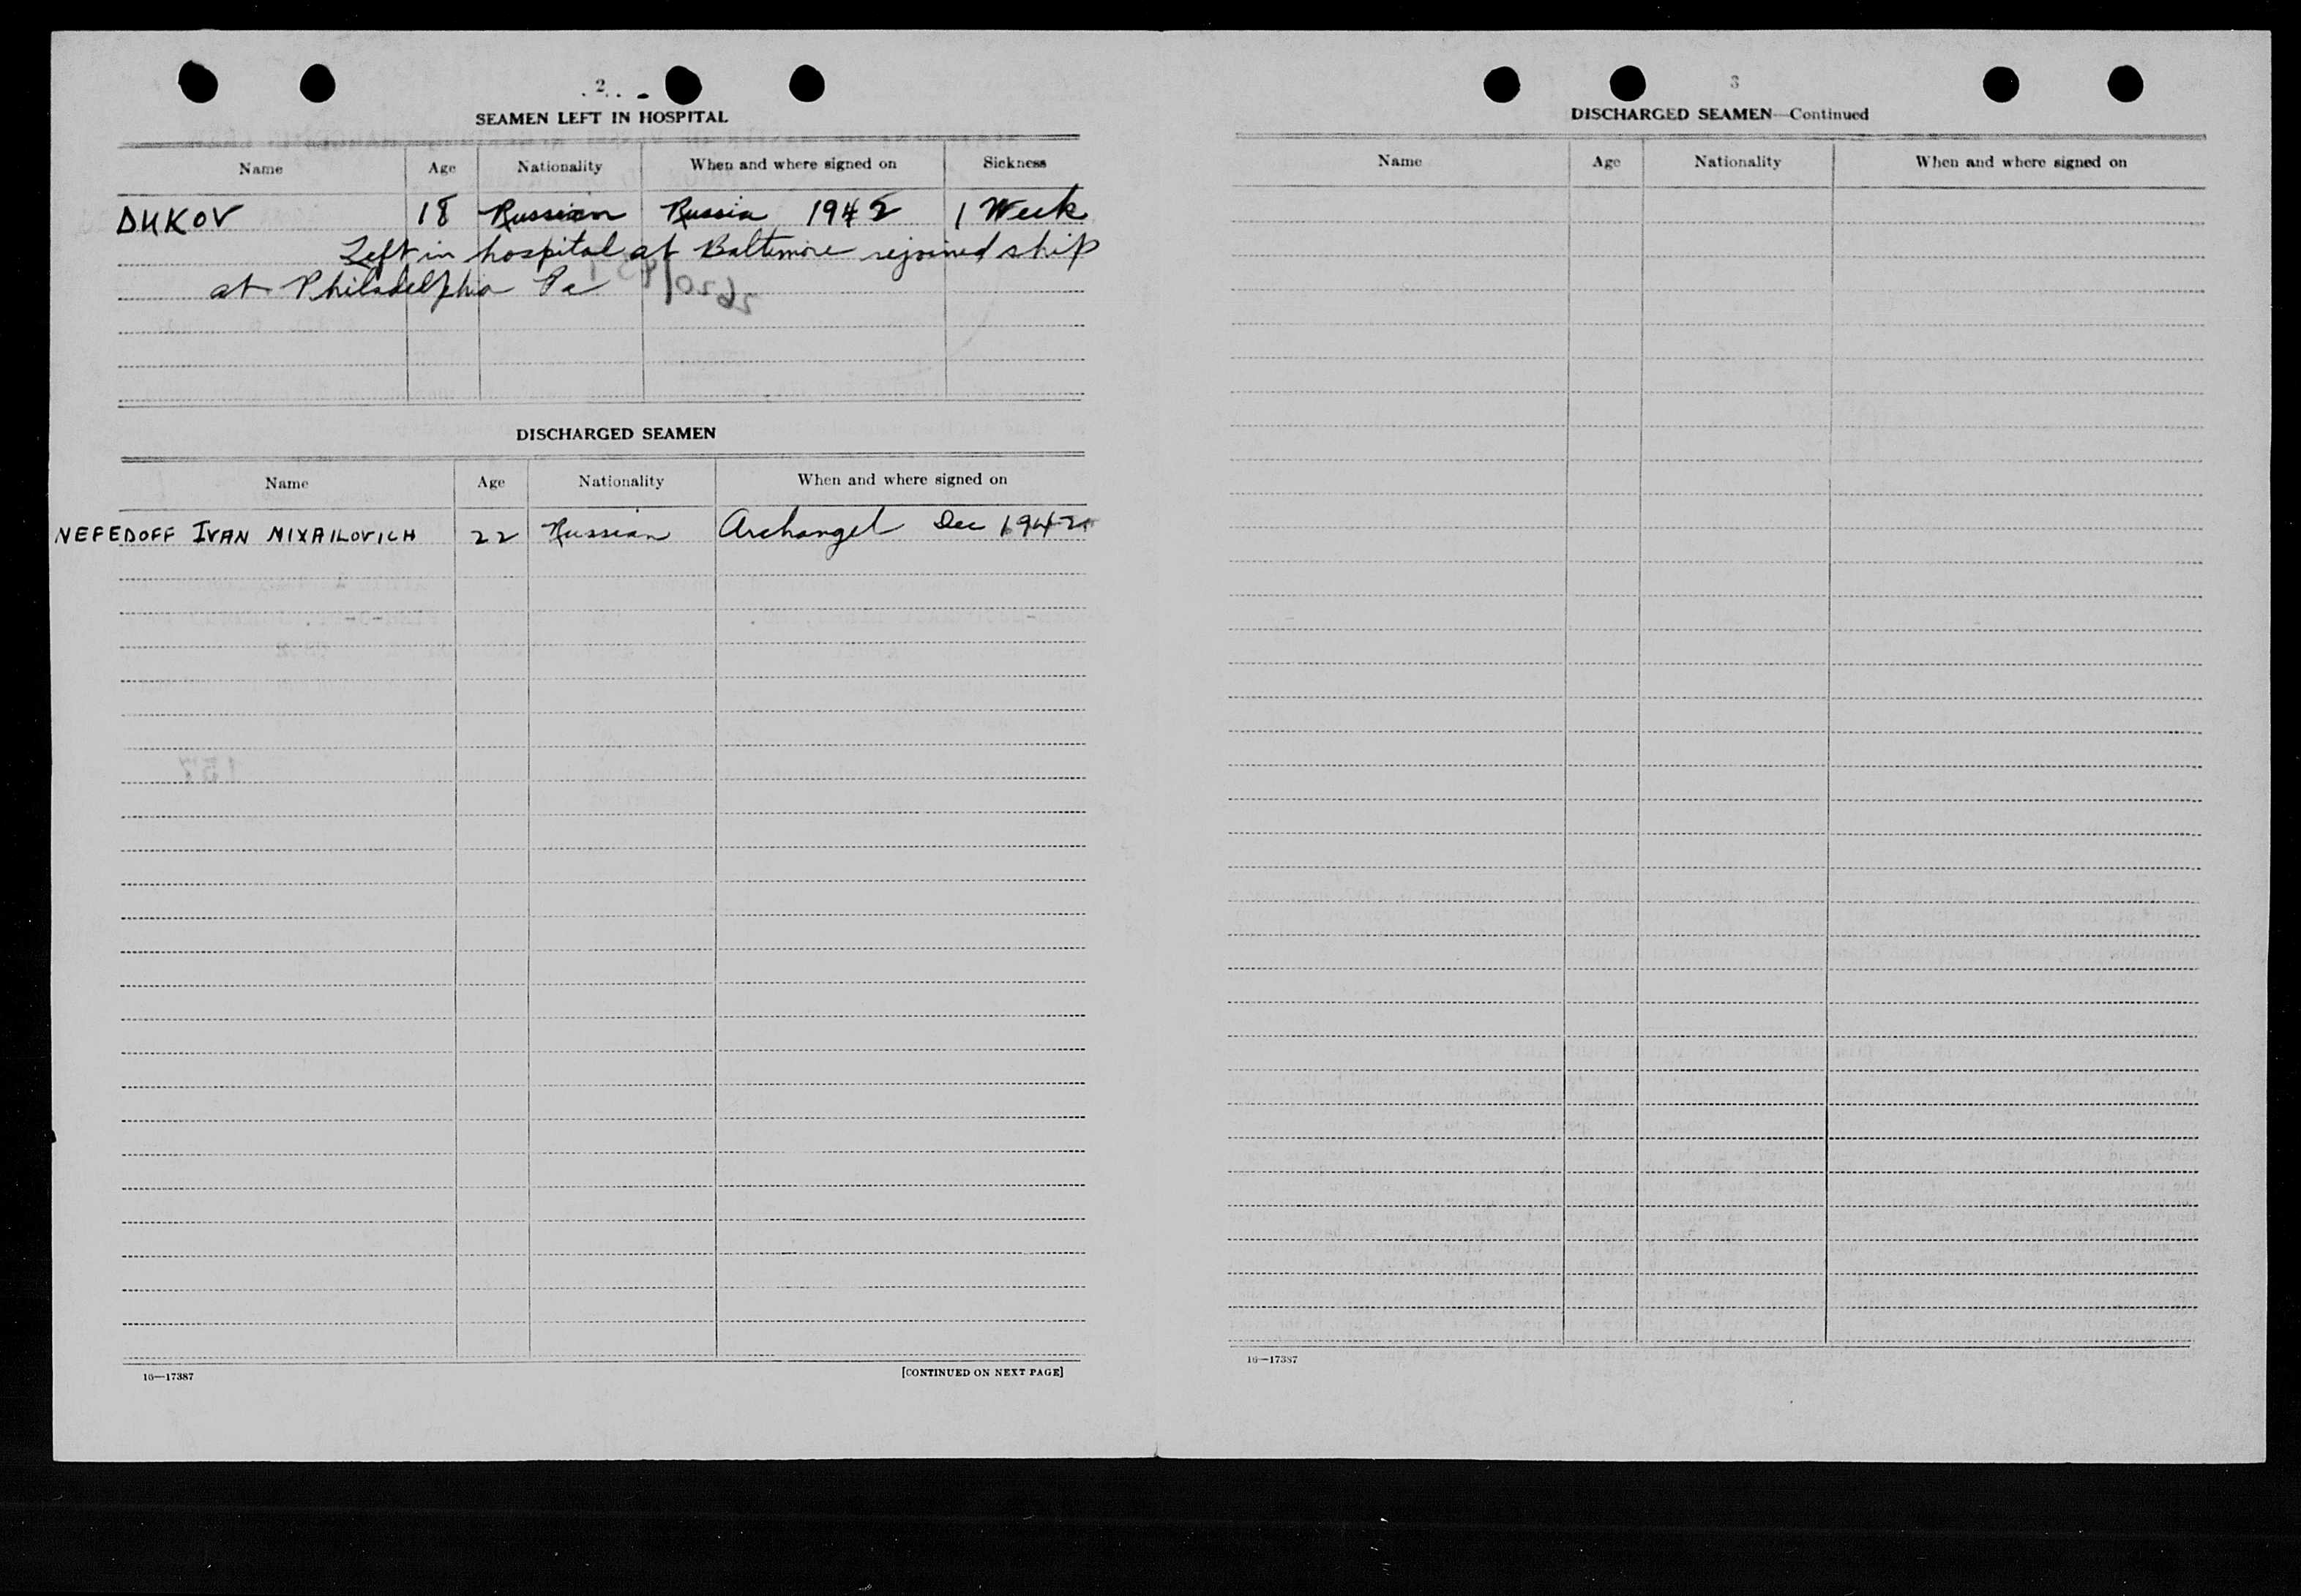 2
SEAMEN LEFT IN HOSPITAL
Name Age Nationality When and where signed on Sickness
DUKOV 18 Russian Russia 1942 1 Week
Left in hospital at Baltimore rejoined ship
at Philadelphia Pa
DISCHARGED SEAMEN
Name Age Nationality When and where signed on
NEFEDOFF IVAN MIXAILOVICH 22 Russian Archangel Dec 1942
16—17387 [CONTINUED ON NEXT PAGE]
3
DISCHARGED SEAMEN—Continued
Name Age Nationality When and where signed on
16—17387